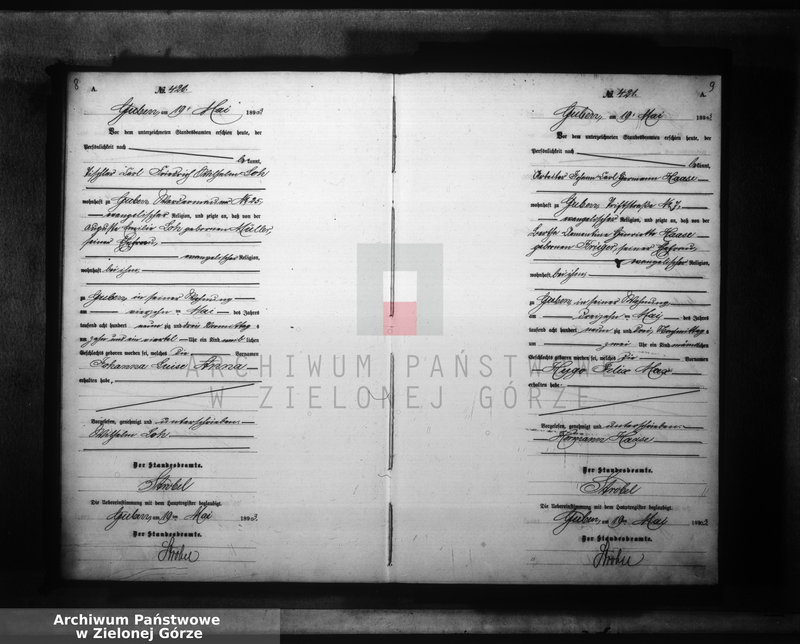 8
A.
№ 420.
Guben, am 19t Mai 1893
Vor dem unterzeichneten Standesbeamten erschien heute, der
Persönlichkeit nach
bekannt,
Tischler Carl Friedrich Wilhelm Loh
wohnhaft zu Guben № 25,
evangelischer Religion, und zeigte an, daß von der
Auguste Emilie Loh gebornen Müller,
seiner Ehefrau,
evangelischer Religion,
wohnhaft bei ihm
zu Guben in seiner Wohnung
am vierzehn ten Mai des Jahres
tausend acht hundert neun zig und drei Vormittags
um zehn und ein viertel Uhr ein Kind weiblichen
Geschlechts geboren worden sei, welches die Vornamen
Johanna Luise Anna
erhalten habe,
Vorgelesen, genehmigt und unterschrieben
Wilhelm Loh
Der Standesbeamte.
Strobel
Die Uebereinstimmung mit dem Hauptregister beglaubigt.
Guben, am 19ten Mai 1893.
Der Standesbeamte.
Strobel
9
A.
№ 421.
Guben, am 19t Mai 1893
Vor dem unterzeichneten Standesbeamten erschien heute, der
Persönlichkeit nach
bekannt,
Arbeiter Johann Carl Hermann Haase
wohnhaft zu Guben, Triftstraße № 7,
evangelischer Religion, und zeigte an, daß von der
Bertha Clementine Henriette Haase
gebornen Krüger, seiner Ehefrau,
evangelischer Religion,
wohnhaft bei ihm
zu Guben in seiner Wohnung
am dreizehn ten Mai des Jahres
tausend acht hundert neun zig und drei, Nachmittags
um zwei Uhr ein Kind männlichen
Geschlechts geboren worden sei, welches die Vornamen
Hugo Felix Max
erhalten habe
Vorgelesen, genehmigt und unterschrieben
Hermann Haase
Der Standesbeamte.
Strobel
Die Uebereinstimmung mit dem Hauptregister beglaubigt.
Guben, am 19ten Mai 1893
Der Standesbeamte.
Strobel
ARCHIWUM PAŃSTWOWE
W ZIELONEJ GÓRZE
Archiwum Państwowe
w Zielonej Górze